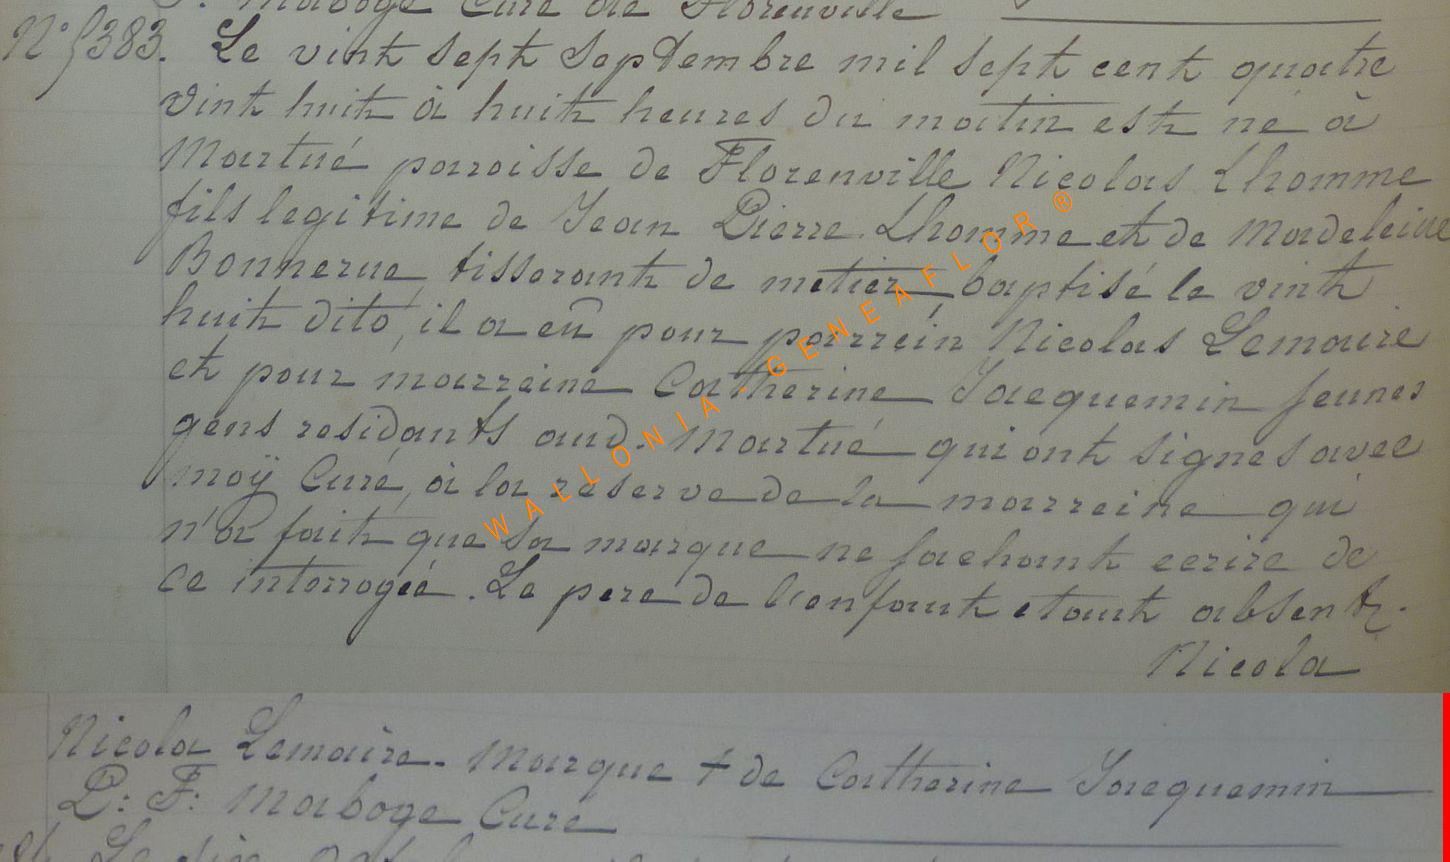 P. Maboge Curé de Florenville
N° 383. Le vint sept Septembre mil sept cent quatre
vint huit à huit heures du matin est né à
Martué parroisse de Florenville Nicolas Lhomme
fils legitime de Jean Pierre Lhomme et de Madeleine
Bonnerue, tisserant de metier baptisé le vint
huit dito, il a eû pour parrein Nicolas Lemaire
et pour marreine Catherine Jacquemin jeunes
gens residants aud. Martué qui ont signes avec
moÿ Curé, à la reserve de la marreine qui
n'a fait que sa marque ne sachant ecrire de
ce interrogée. Le pere de l'enfant etant absent.
Nicola
Nicola Lemaire. Marque + de Catherine Jacquemin
P: F: Maboge Curé
WALLONIA - GENEAFLOR ®